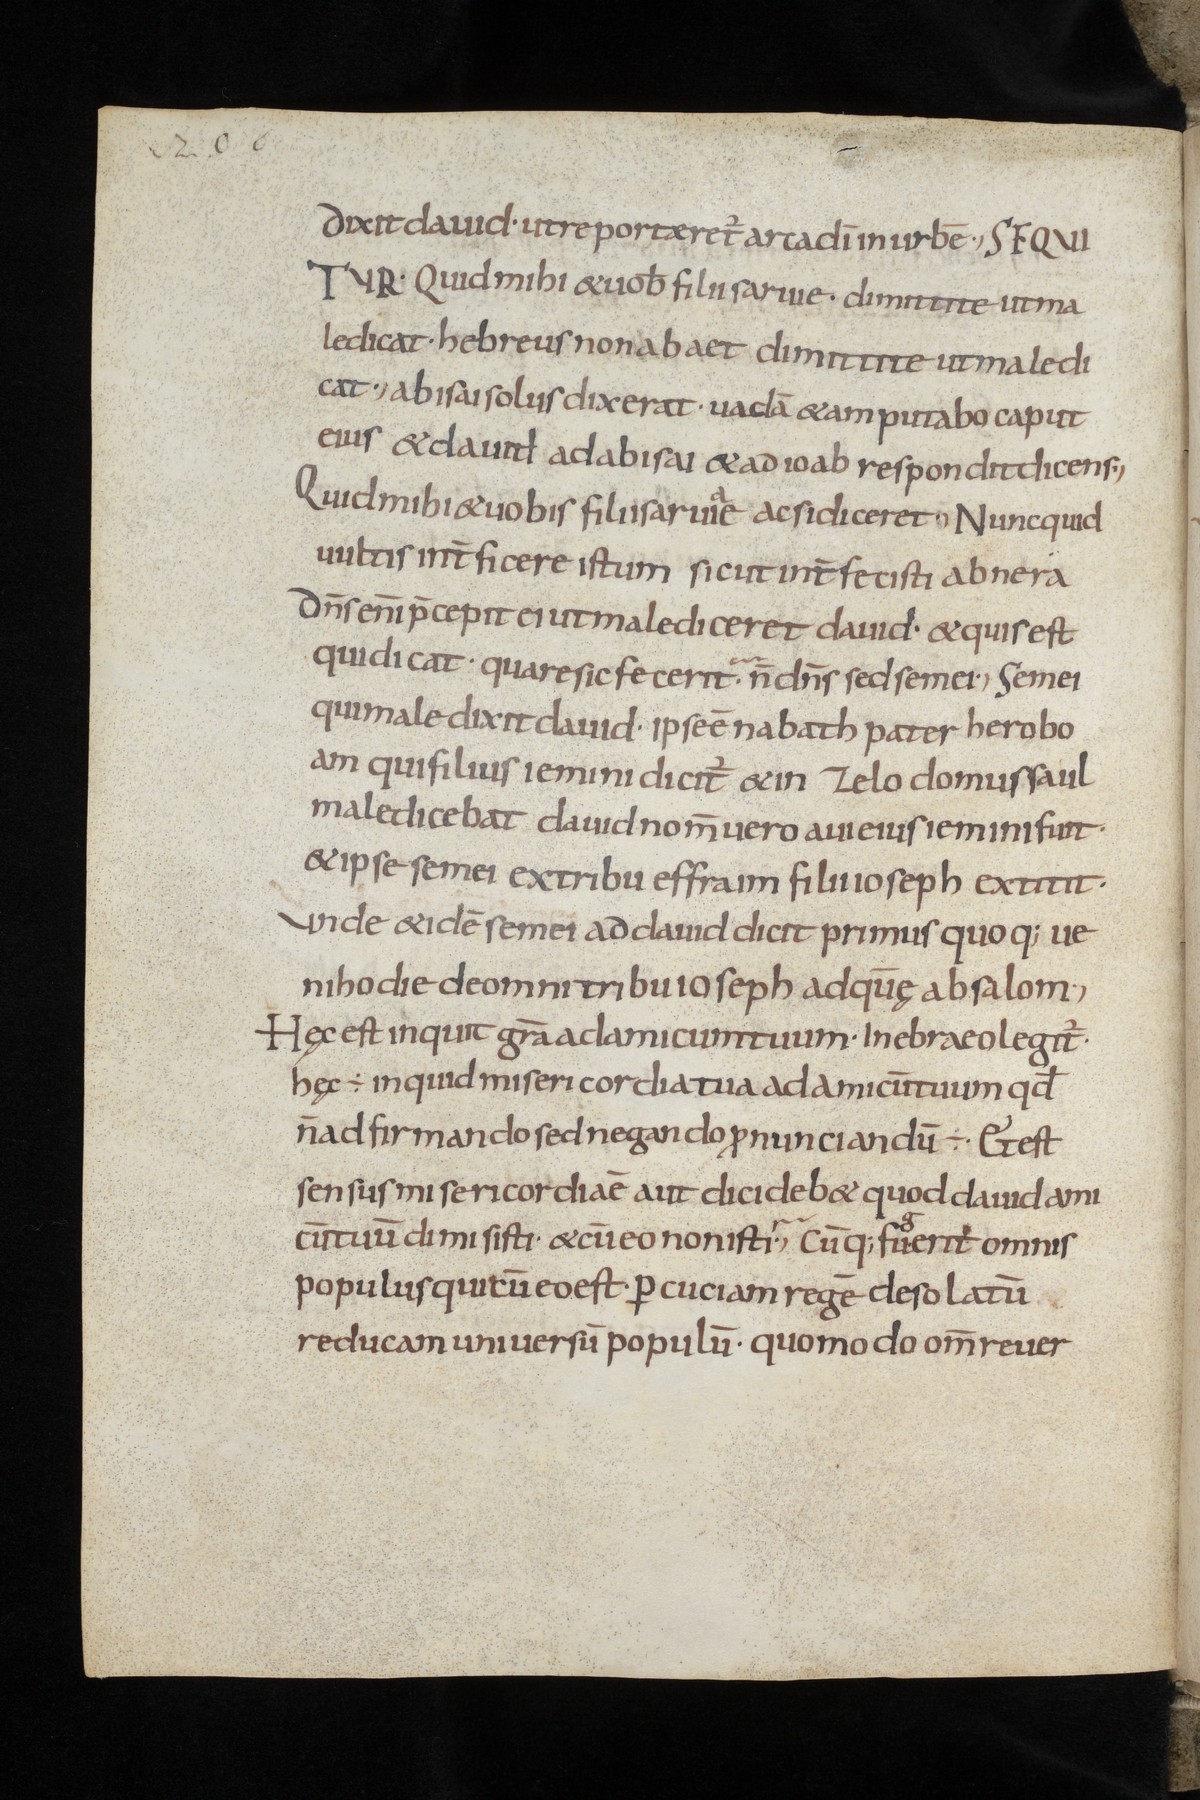 206
dixit dauid· ut reportaret᷑ arca dī in urbē·, SEQUI
TUR· Quid mihi & uob̄ filii saruie· dimittite ut ma
ledicat· hebreus non abaet dimittite ut maledi
cat·, abisai solus dixerat· uadā & amputabo caput
eius & dauid ad abisai & ad ioab respondit dicens·,
Quid mihi & uobis filii saruiae ac si diceret·, Nuncquid
uultis int̄ficere istum sicut int̄fecisti abnera
Dn̄s en̄i p̄cepit ei ut malediceret dauid· & quis est
qui dicat· quare sic fecerit· n̄ dn̄s sed semei·, Semei
qui maledixit dauid· ipse ē nabath pater herobo
am qui filius iemini dicit᷑ & in zelo domus saul
maledicebat dauid nom̄ uero aui eius iemini fuit·
& ipse semei ex tribu effraim filii ioseph extitit·
Unde & idē semei ad dauid dicit primus quoq; ue
ni hodie de omni tribu ioseph adquę̄ absalom·,
Hęc est inquit gr̄a ad amicum tuum· In ebraeo legit᷑·
hęc ÷ inquid misericordia tua ad amicū tuum qd̄
n̄ ad firmando sed negando ꝓnunciandū ÷· Et est
sensus misericordiaē aut dici deb& quod dauid ami
cū tuū dimisisti· & cū eo non isti·, Cūq; fugerit omnis
populus qui cū eo est· ꝑcuciam regē desolatū
reducam uniuersū populū· quomodo om̄ reuer